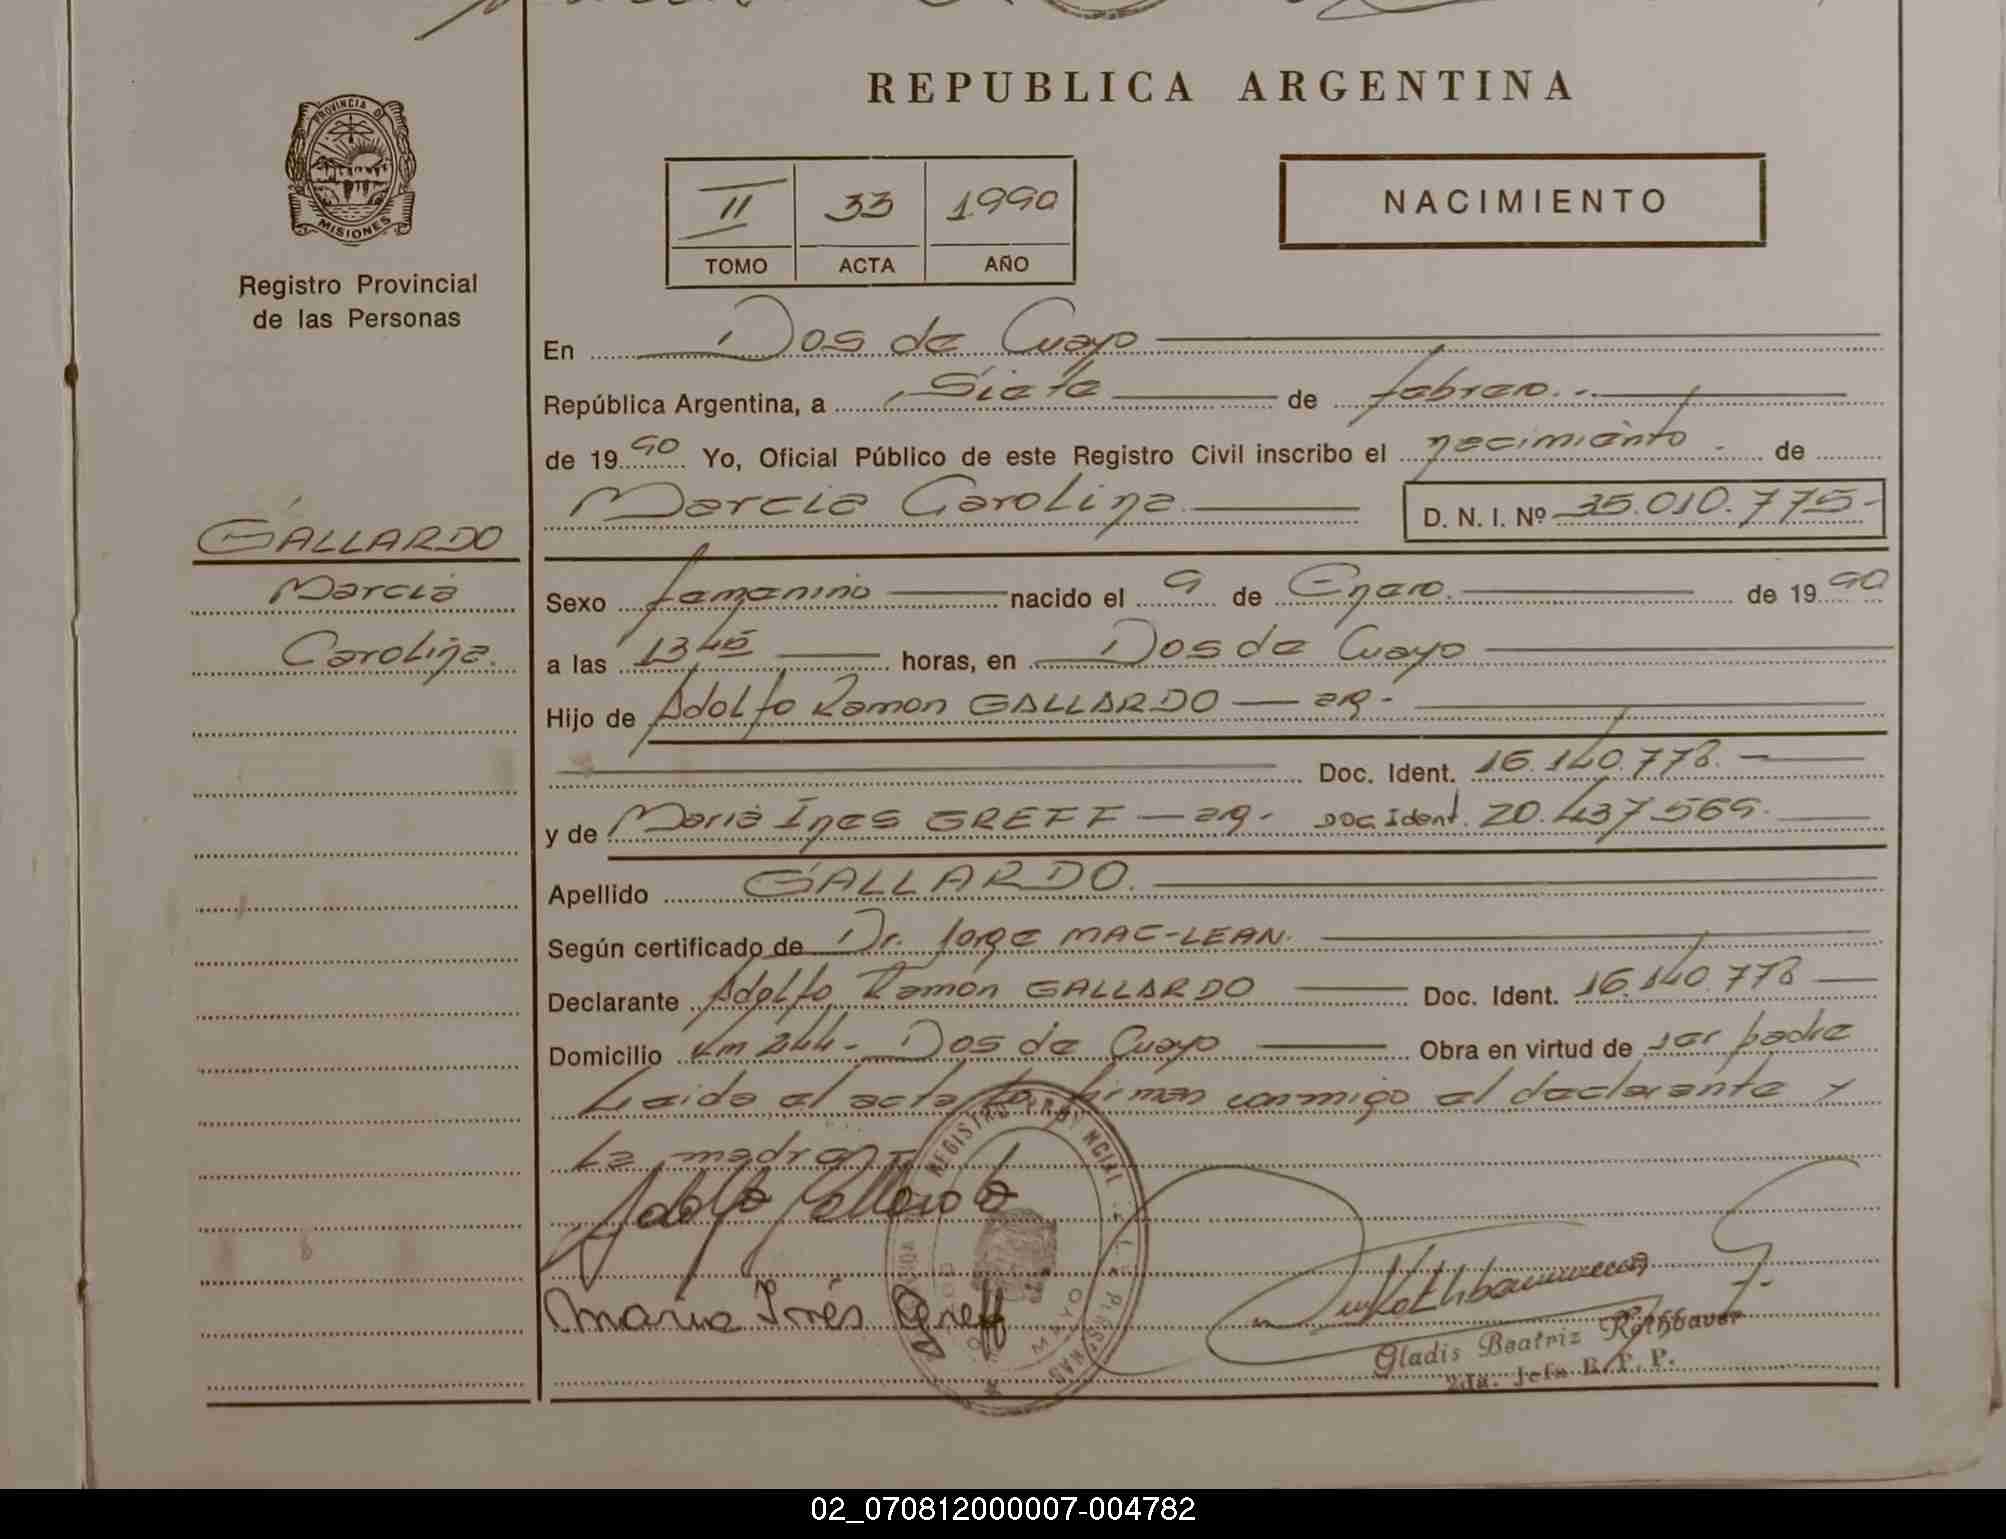 REPUBLICA ARGENTINA
PROVINCIA DE
MISIONES
Registro Provincial
de las Personas
NACIMIENTO
II 33 1990
TOMO ACTA AÑO
En Dos de Mayo
República Argentina, a Siete de febrero
de 1990 Yo, Oficial Público de este Registro Civil inscribo el nacimiento de
Marcia Carolina D. N. I. Nº 35.010.775-
GALLARDO
Marcia
Carolina.
Sexo femenino nacido el 9 de Enero. de 1990
a las 13 45 horas, en Dos de Mayo
Hijo de Adolfo Ramon GALLARDO — ar-
Doc. Ident. 16.140.778.
y de Maria Ines GREFF — ar- Doc Ident. 20.437.569.
Apellido GALLARDO.
Según certificado de Dr. Jorge MAC-LEAN.
Declarante Adolfo Ramón GALLARDO Doc. Ident. 16.140.778
Domicilio Km 244- Dos de Mayo Obra en virtud de ser padre
Leida el acta la firman conmigo el declarante y
la madre
REGISTRO PROVINCIAL
MAYO
Adolfo Gallardo
Maria Inés Greff
Gladis Beatriz Rothbauer
2da. Jefa R. P. P.
02_070812000007-004782